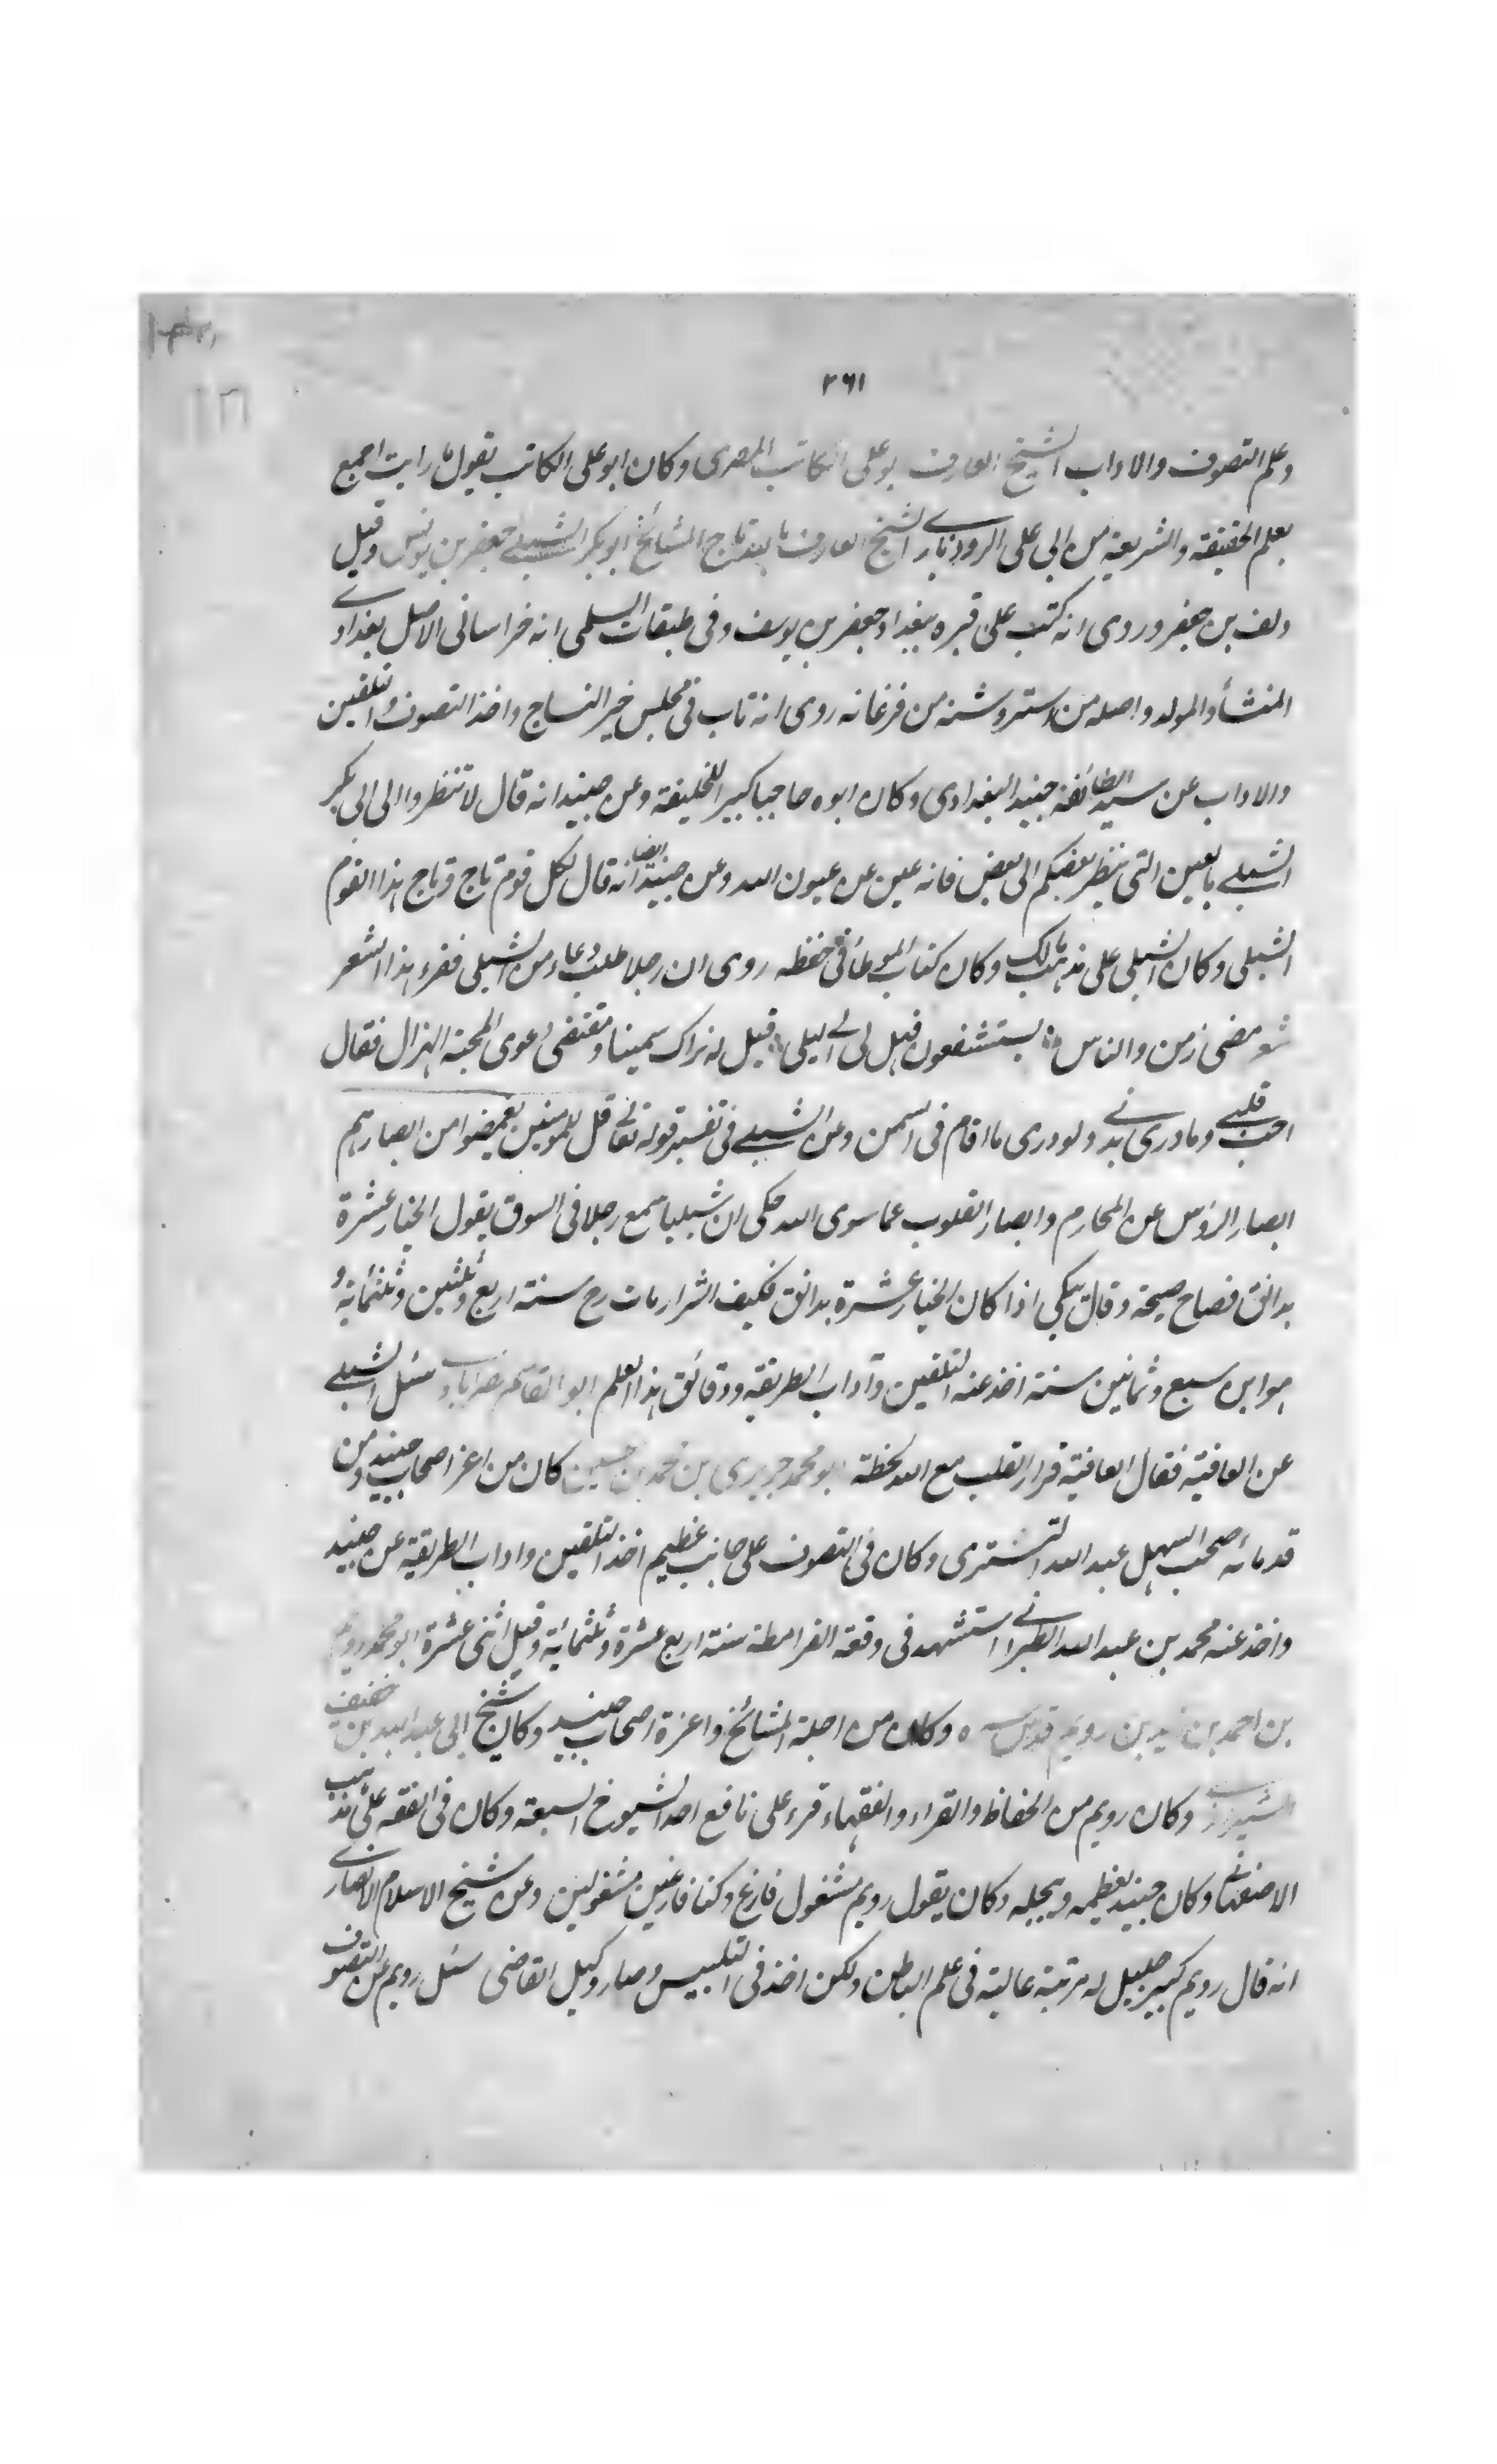 ٢٦١
وعلم التصوف والاداب الشيخ العارف بو على الكاتب المصرى وكان ابو على الكاتب يقول ما رايت اجمع
بعلم الحقيقة والشريعة من ابى على الرودبارے الشيخ العارف بالله تاج المشائخ ابو بكر الشبلے جعفر بن يونس وقيل
دلف بن جعفر وروى انه كتب على قبره ببغداد جعفر بن يوسف وفى طبقات السلمى انه خراسانى الاصل بغدادے
المنشأ والمولد واصله من استروشنه من فرغانه روى انه تاب فى مجلس خير النساج واخذ التصوف والتلقين
والاداب عن سيد الطائفة جنيد البغدادى وكان ابوه حاجبا كبير اللخليفة وعن جنيد انه قال لا تنظروا الى ابى بكر
الشبلے بالعين التى ينظر بعضكم الى بعض فانه عين من عيون الله وعن جنيد ايضا انه قال لكل قوم تاج وتاج هذا القوم
الشبلى وكان الشبلى على مذهب مالك وكان كتاب الموطا فى حفظه روى ان رجلا طلب دعاء من الشبلى فقرء هذا الشعر
شعر مضى زمن والناس يستشفعون فهل لى الے ليلى قيل له نراك سمينا ومقتضى دعوى المحبة الهزال فقال
احب قلبے وما درى بدنے ولو درى ما اقام فى السمن وعن الشبلے فى تفسير قوله تعالے قل للمومنين يغضوا من ابصارهم
ابصار الرؤس عن المحارم وابصار القلوب عما سوى الله حكى ان شبليا سمع رجلا فى السوق يقول الخيار عشرة
بدانق فصاح صيحة وقال يبكى اذا كان الخيار عشرة بدانق فكيف الشرار مات رح سنة اربع وثلثين وثلثمائة و
هو ابن سبع وثمانين سنة اخذ عنه التلقين وآداب الطريقة ودقائق هذا العلم ابو القاسم نصرابادے سئل الشبلے
عن العافية فقال العافية قرار القلب مع الله لحظة ابو محمد جريرى بن محمد بن حسين كان من اعز اصحاب جنيد ومن
قدمائه صحب السهل عبد الله التسترى وكان فى التصوف على جانب عظيم اخذ التلقين واداب الطريقة عن جنيد
واخذ عنه محمد بن عبد الله الطبرانے استشهد فى وقعة القرامطة سنة اربع عشرة وثلثمائة وقيل اثنى عشرة ابو محمد رويم
بن احمد بن يزيد بن رويم قدس سره وكان من اجلة المشائخ واعزة اصحاب جنيد وكان شيخ ابى عبد الله بن خفيف
الشيرازے وكان رويم من الحفاظ والقراء والفقهاء قرء على نافع احد الشيوخ السبعة وكان فى الفقه على مذهب
الاصفهانے وكان جنيد يعظمه ويبجله وكان يقول رويم مشغول فارغ وكنا فارغين مشغولين وعن شيخ الاسلام الانصارے
انه قال رويم كبير جليل له مرتبة عالية فى علم الباطن ولكن اخذ فى التلبيس وصار وكيل القاضى سئل رويم عن التصوف